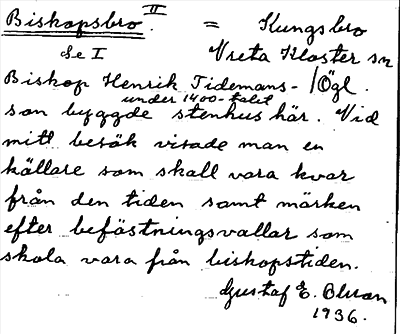 Biskopsbro. II = Kungsbro
Se I Vreta Kloster sn
Biskop Henrik Tidemans- /Ögl.
under 1400-talet
son byggde stenhus här. Vid
mitt besök visade man en
källare som skall vara kvar
från den tiden samt märken
efter befästningsvallar som
skola vara från biskopstiden.
Gustaf E.
1936.